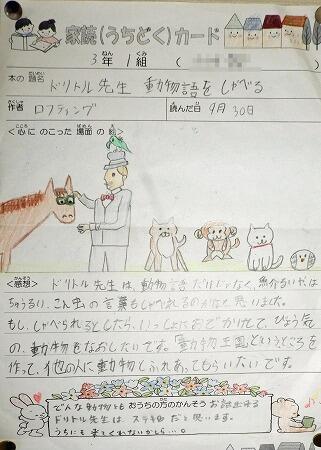 家読(うちどく)カード
3年1組(
本の題名 ドリトル先生 動物語をしゃべる
作者 ロフティング 読んだ日 9月30日
<心にのこった場面の絵>
<感想> ドリトル先生は、動物語だけじゃなく、魚介るいや、は
ちゅうるい、こん虫の言葉もしゃべれるのかなと思いました。
もし、しゃべられるとしたら、いっしょにおでかけして、ひょう気
の、動物をなおしたいです。動物王国というところを
作って、他の人に動物とふれあってもらいたいです。
おうちの方のかんそう
どんな動物とも お話出来る
ドリトル先生は ステキだと思います。
うちにも 来てくれないかしら…。